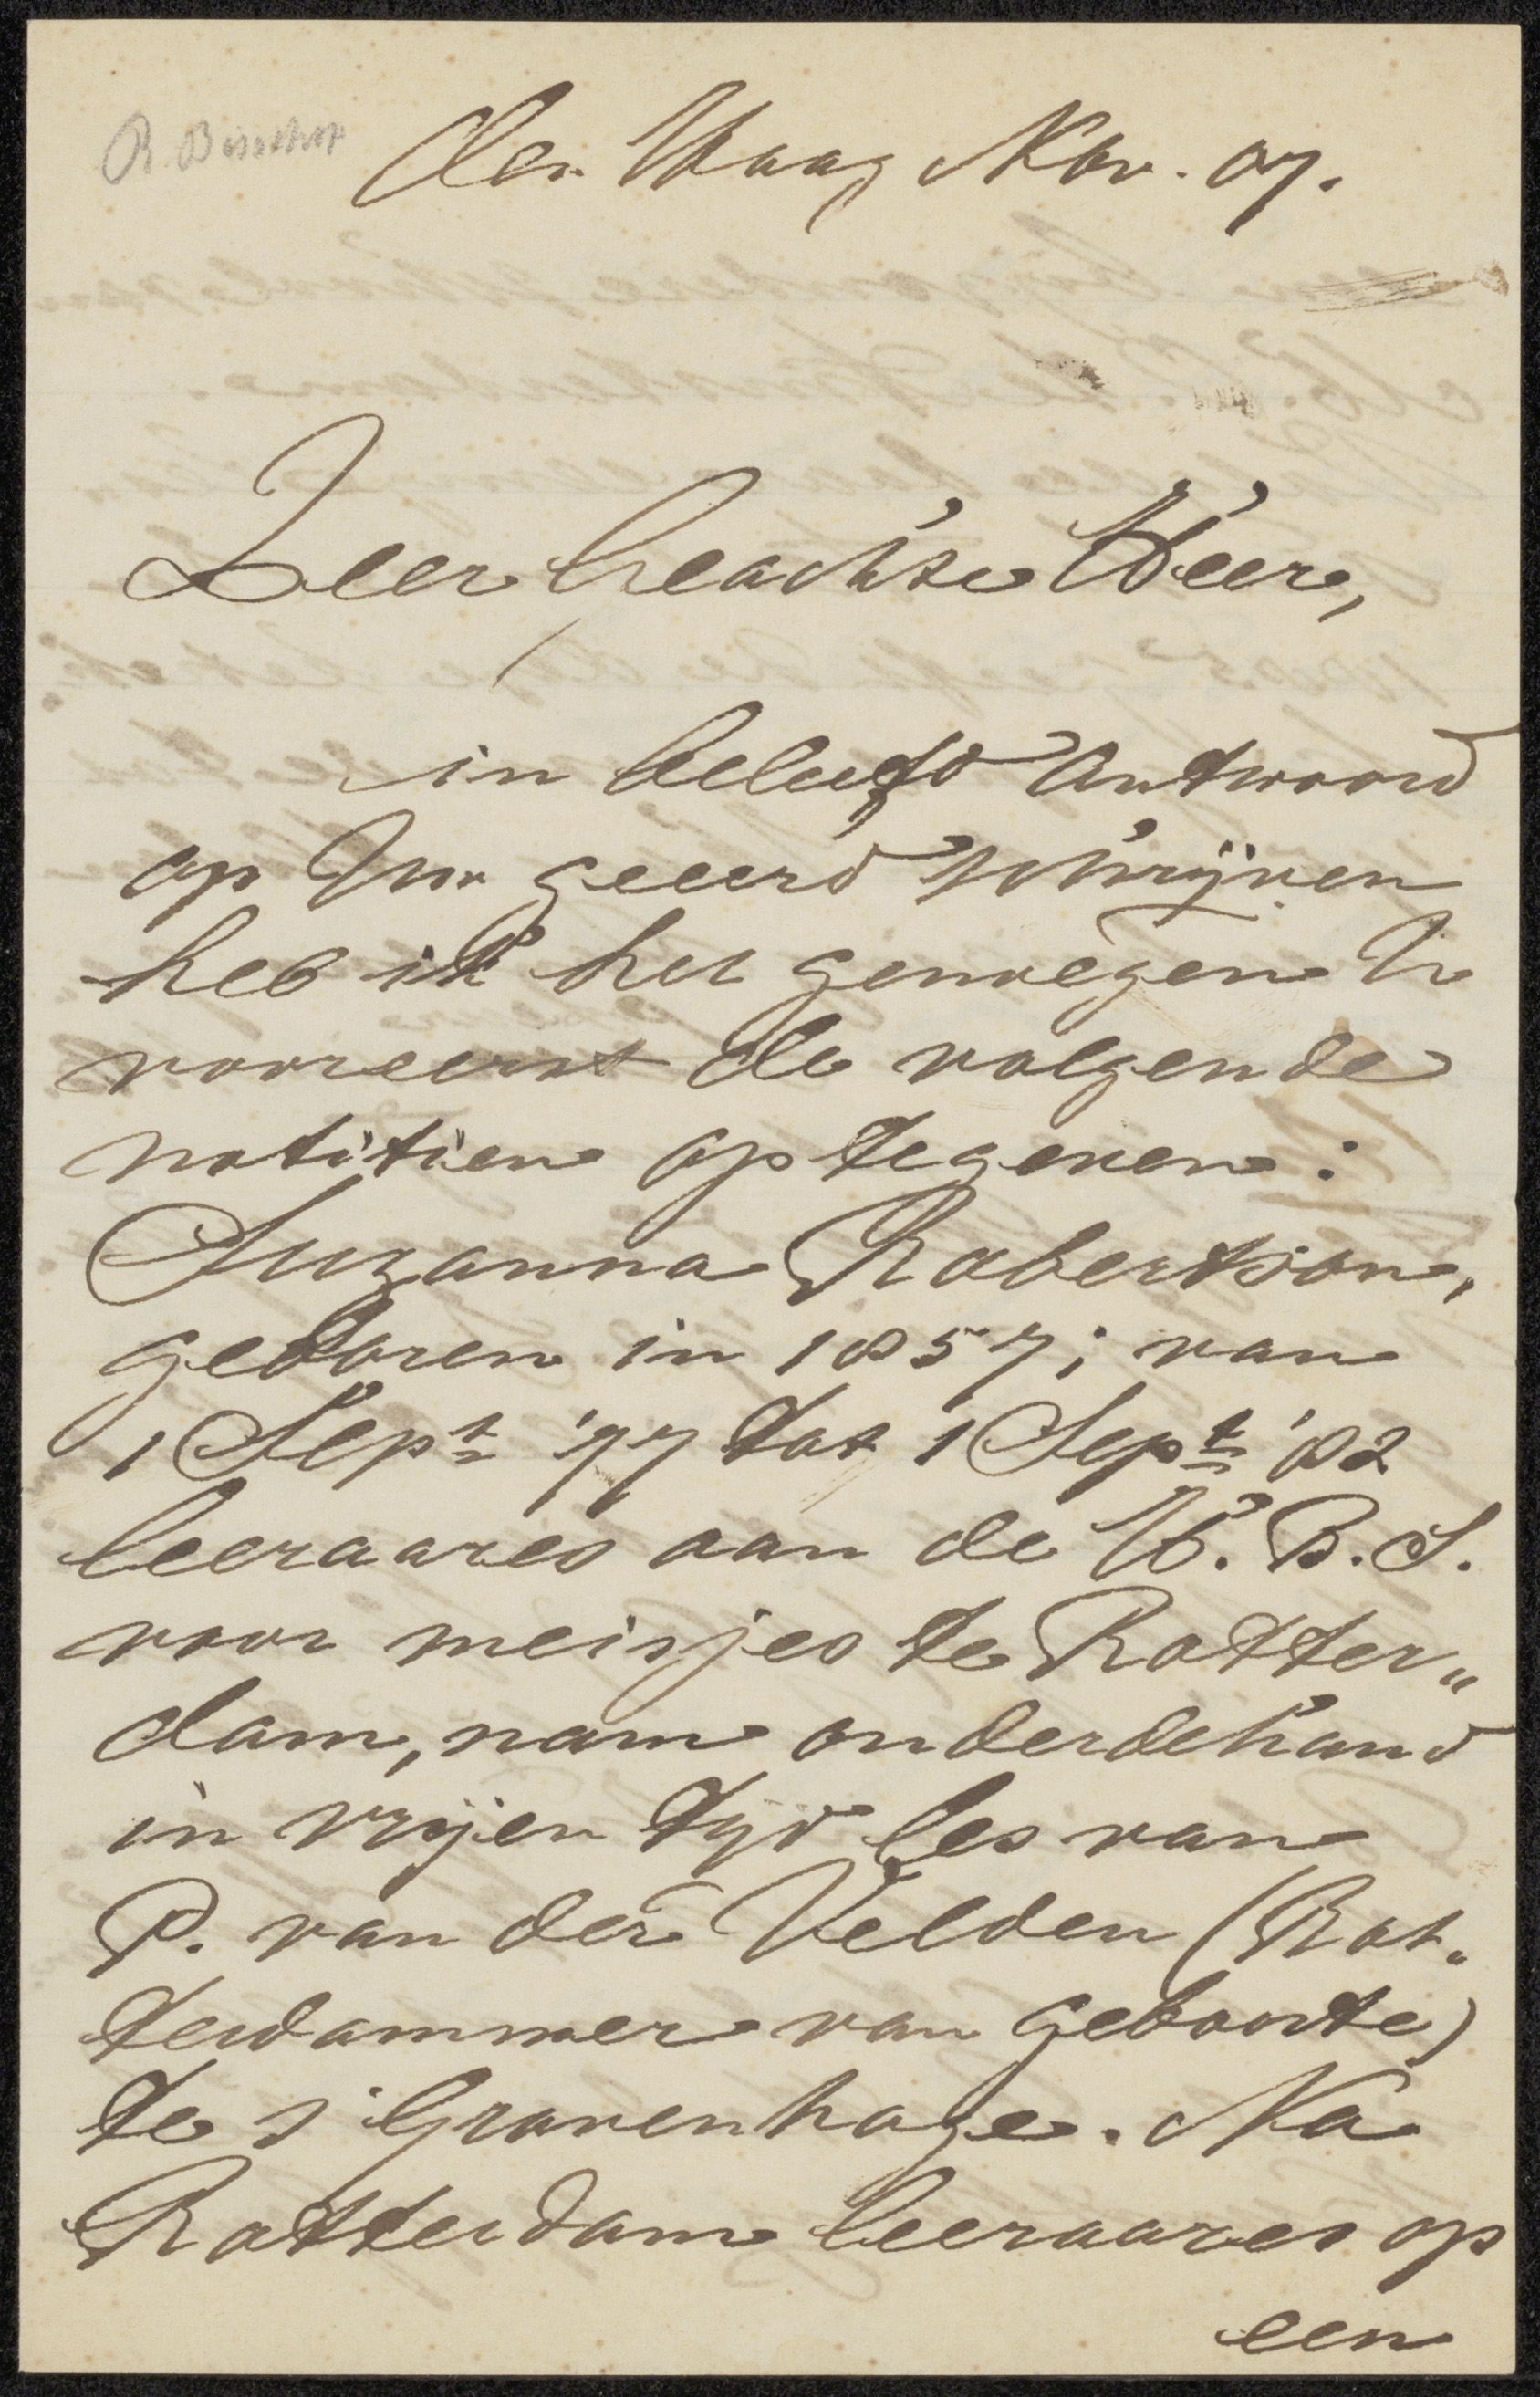 R. Bisschop
den Haag Nov. 07.
Zeer Geachte Heer,
in beleefd antwoord
op Uw geeerd schrijven
heb ik het genoegen U
vooreerst de volgende
notitien op tegeven:
Suzanna Robertson,
geboren in 1857; van
1 Sept '77 tot 1 Sept '82
leeraares aan de H. B. S.
voor meisjes te Rotter„
dam, nam onderdehand
in vrijen tijd les van
P. van der Velden (Rot„
terdammer van geboorte)
te s' Gravenhage. Na
Rotterdam leeraares op
een